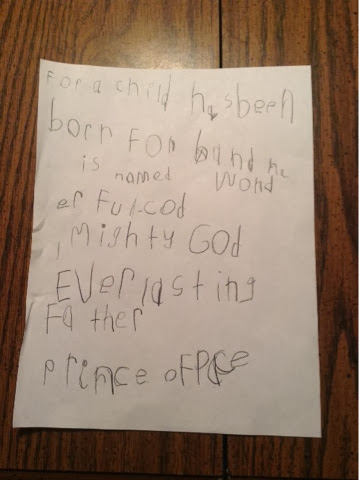 For a child hasbeen
born For band he
is named Wond
er Ful-cod
, Mighty God
EVerlasting
Father
prince oFPece